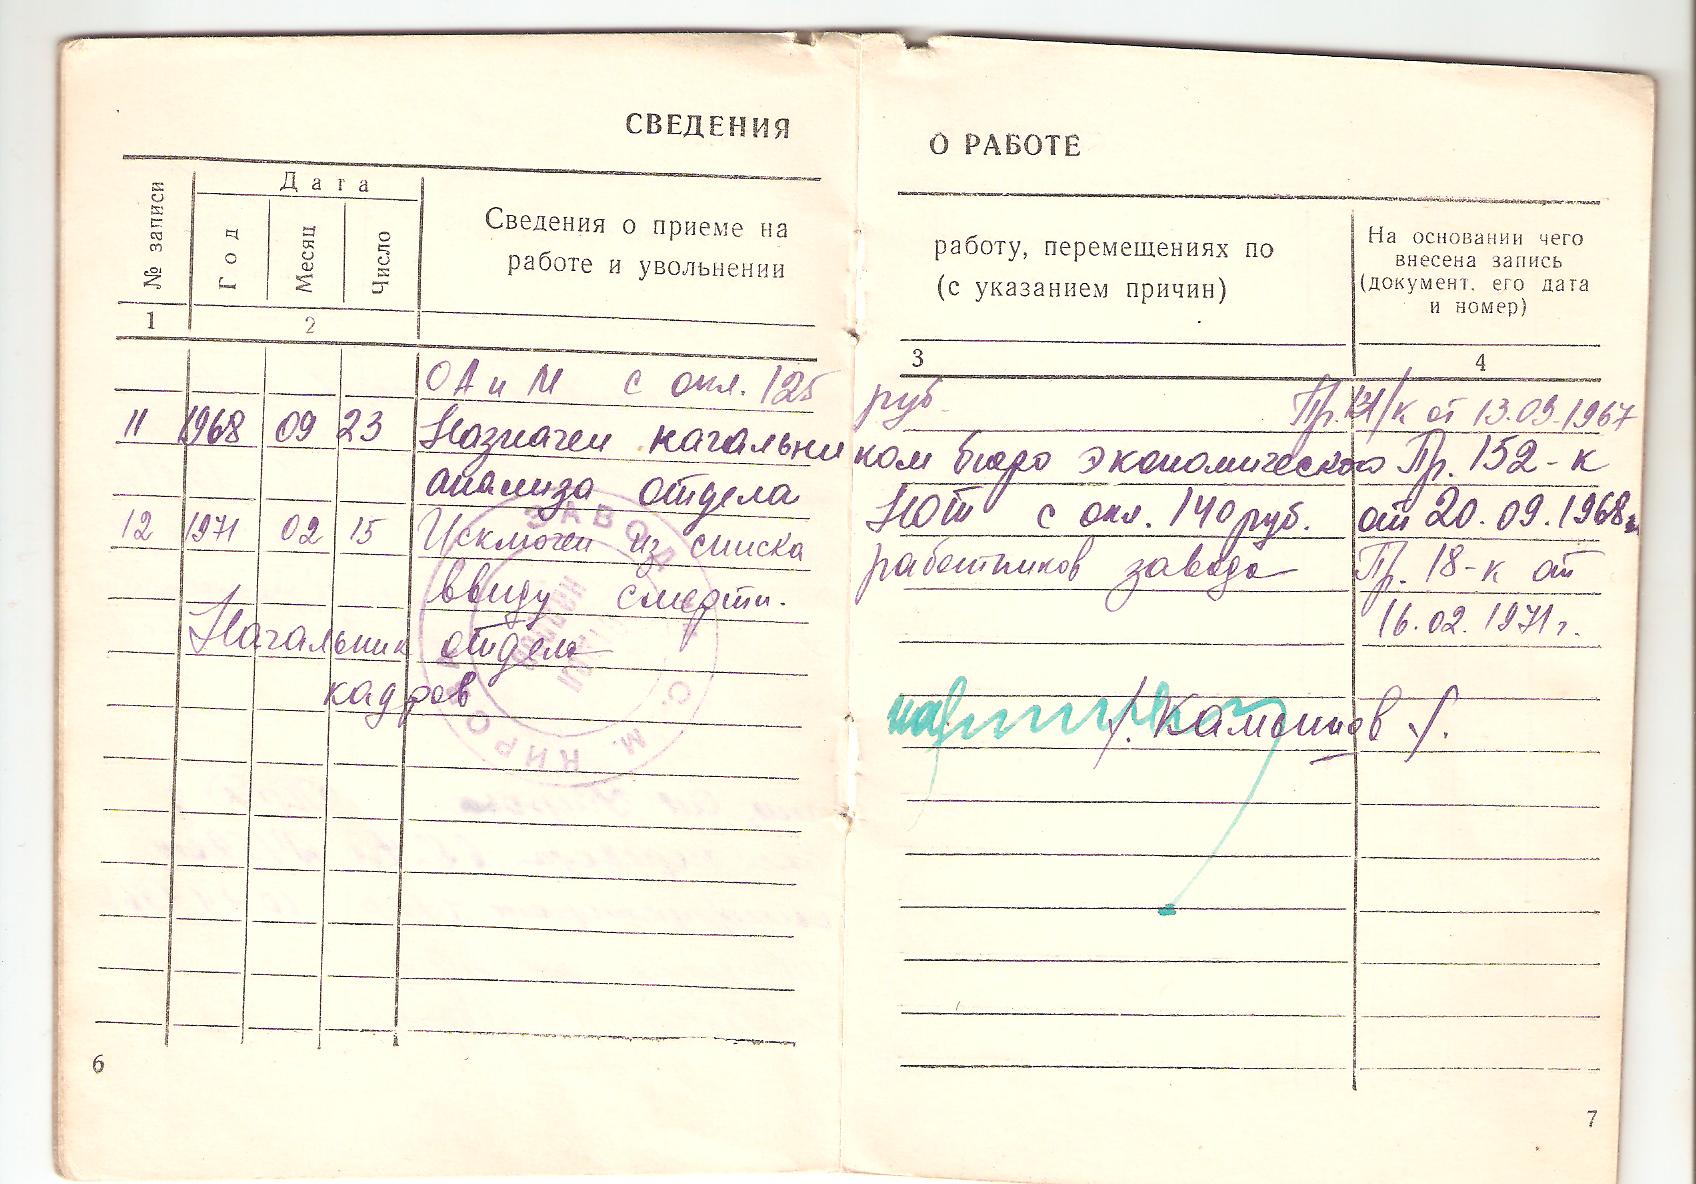 СВЕДЕНИЯ О РАБОТЕ
№ записи
Дата
Год
Месяц
Число
Сведения о приеме на работу, перемещениях по
работе и увольнении (с указанием причин)
На основании чего
внесена запись
(документ, его дата
и номер)
1 2 3 4
ОА и М с окл. 125 руб. Пр. 131/к от 13.09.1967
11 1968 09 23 Назначен начальником бюро экономического Пр. 152-к
анализа отдела НОТ с окл. 140 руб. от 20.09.1968г.
12 1971 02 15 Исключен из списка работников завода Пр. 18-к от
ввиду смерти. 16.02.1971г.
Начальник отдела
кадров
ЗАВОД
С. М. КИРОВА
6
7